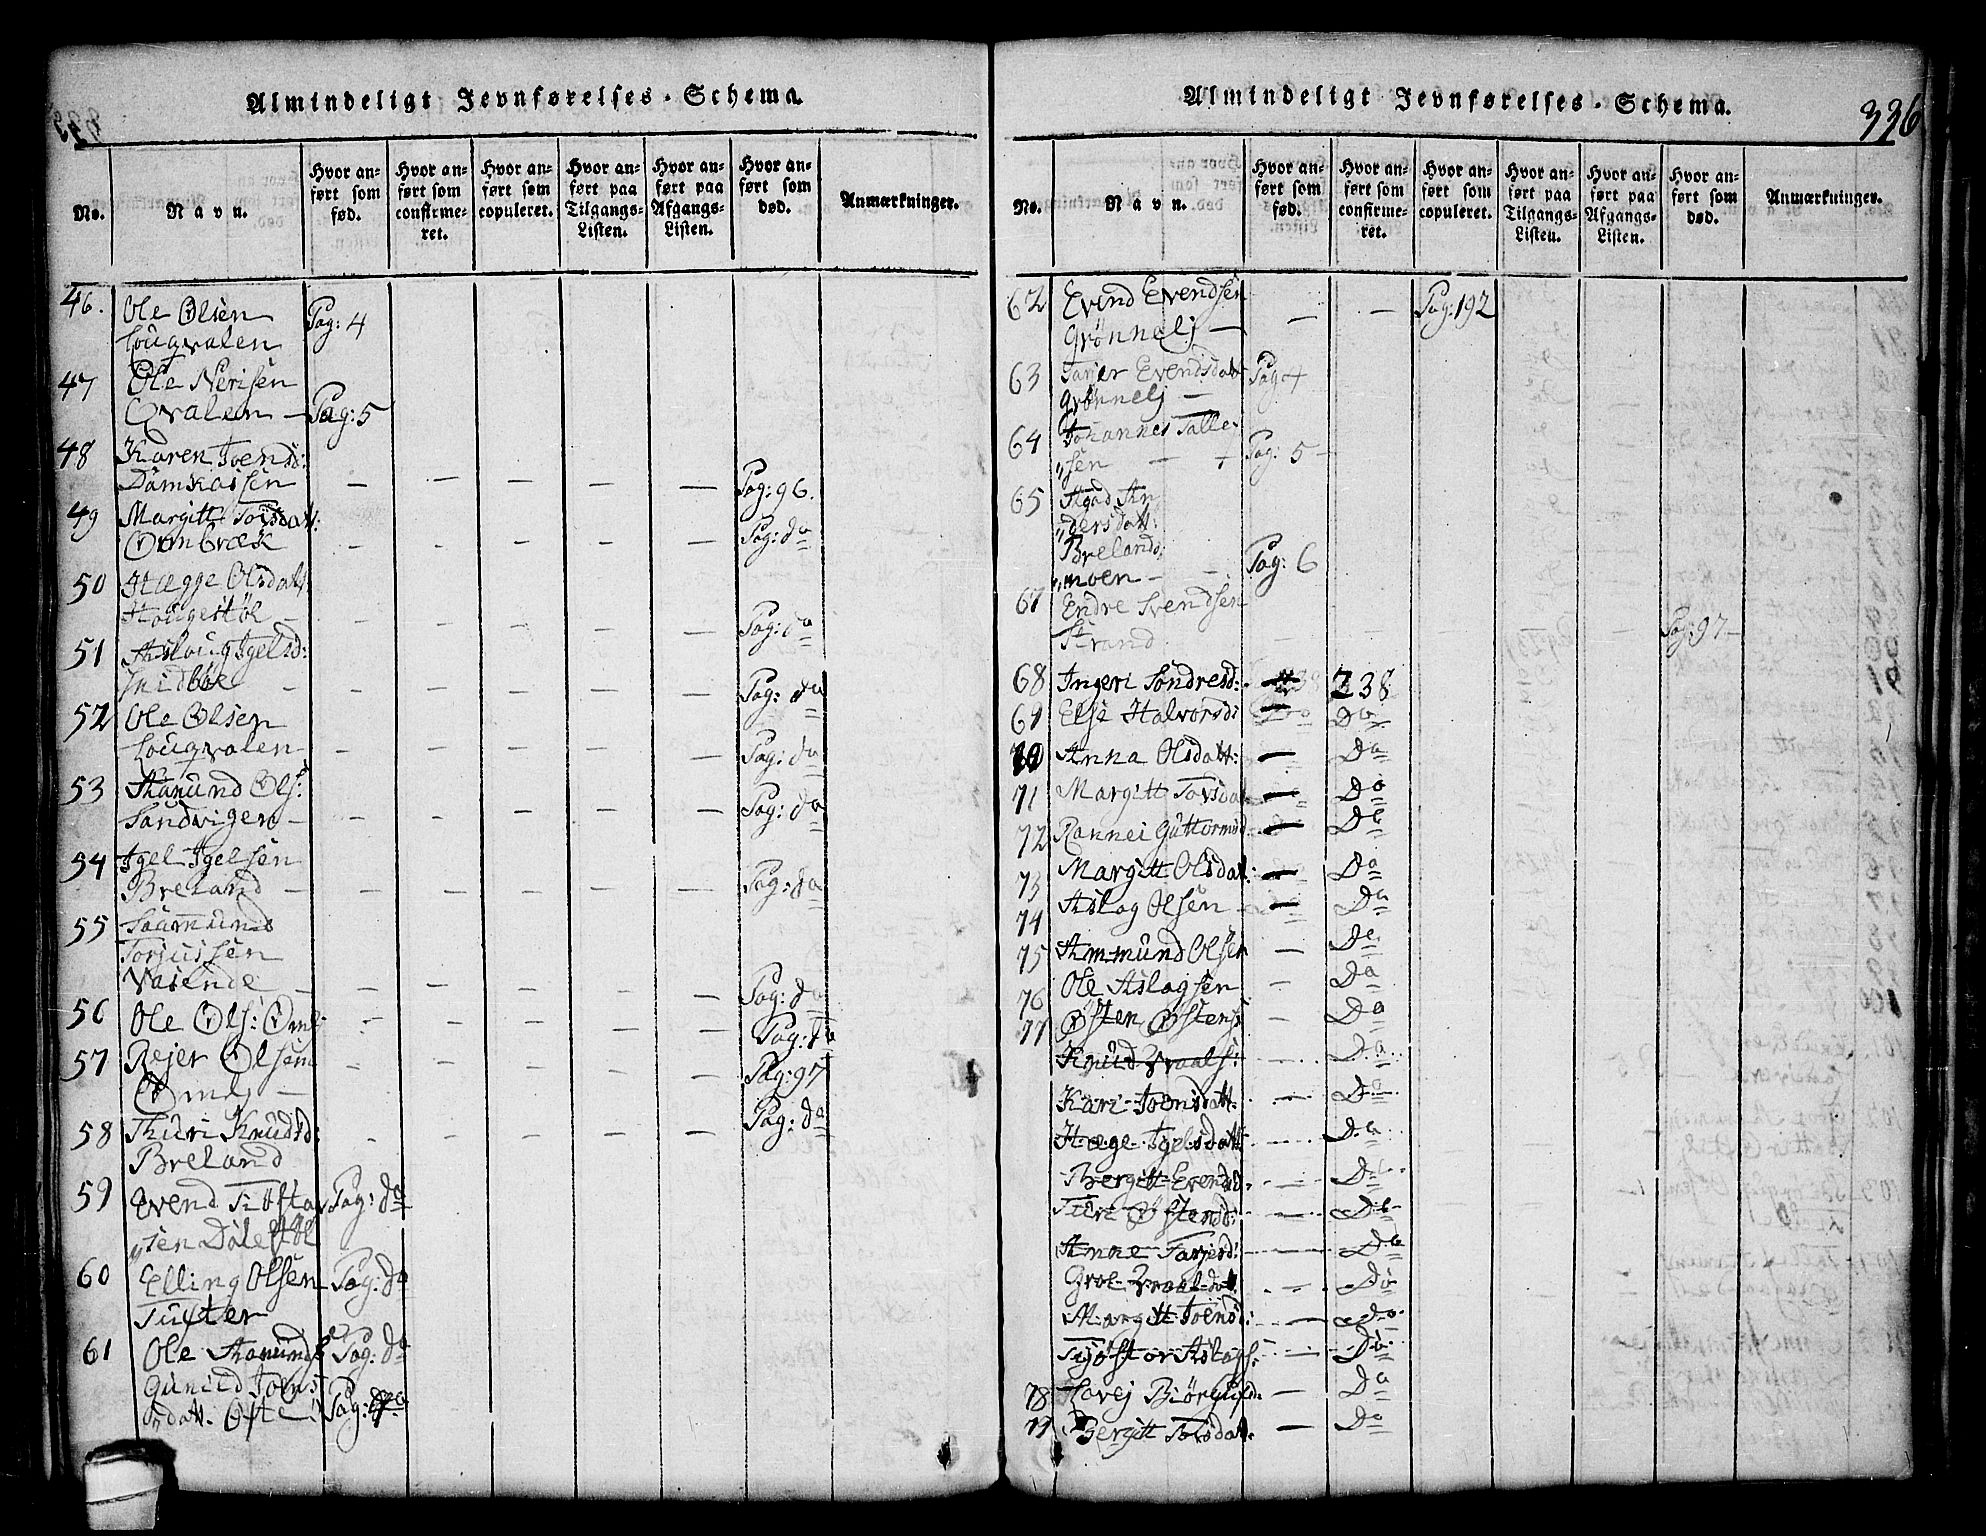 Almindeligt Jevnførelses-Schema.
No.
Navn.
Hvor an-
ført som
fød.
Hvor an-
ført som
confirme-
ret.
Hvor an-
ført som
copuleret.
Hvor an-
ført paa
Tilgangs-
Listen.
Hvor an-
ført paa
Afgangs-
Listen.
Hvor an-
ført som
død.
Anmærkninger.
46. Ole Olsen Pag: 4
Lougvalen
47 Ole Nerisen
Qvalen — Pag: 5
48 Karen Joensd:
— — — — — Pag: 96.
49 Margitt Torsdatt:
— — — — — Pag: do
50 Hægge Olsdatt
Hougestøl — — — — — — Pag: do
51 Asloug Igelsd:
— — — — — — Pag: do
52 Ole Olsen
Lougvalen — — — — — Pag: do
53 Aamund Ols:
Sandvigen — — — — — — Pag: do
54 Igel Igelsen
Breland — — — — — — Pag: do
55 Saamund
Torjussen
Vaiende — — — — — — Pag: do
56 Ole Ols: — — — — — Pag: do
57 Rejer Olsen — — — — — Pag: 97
58 Thuri Knudsd: — — — — — Pag: do
Breland
59 Evend Tiøstav Pag: do
"sen Dalestøl
60 Elling Olsen Pag: do
Tufter
61 Ole Aamunds Pag: do
Gunild Joens
"datt. Pag: do
Almindeligt Jevnførelses-Schema.
336
No.
Navn.
Hvor an-
ført som
fød.
Hvor an-
ført som
confirme-
ret.
Hvor an-
ført som
copuleret.
Hvor an-
ført paa
Tilgangs-
Listen.
Hvor an-
ført paa
Afgangs-
Listen.
Hvor an-
ført som
død.
Anmærkninger.
62 Evend Evendsen — — Pag: 192
Grønnelj —
63 Tarjer Evendsdatt Pag: 4
Grønnelj —
64 Johannes Talle-
"sen — + Pag: 5 —
65 Aagod An
"dersdatt:
Brelands:
"moen — — Pag: 6
67 Endre Svendsen
Strand — — — — — Pag: 97 —
68 Ingeri Sondresd: 238
69 Else Halvorsd: Do
70 Anna Olsdatt: — Do
71 Margitt Torsdat — Do
72 Rannei Guttormsd — Do
73 Margitt Olsdat: — Do
74 Aslag Olsen — Do
75 Ammund Olsen — Do
76 Ole Aslagsen — Do
77 Østen Østens — Do
Knud Vraals: — Do
Kari Joensdatt. — Do
Hæge Igelsdatt — Do
Bergitt Evensd. — Do
Turi Østensd: — Do
Anne Tarjesd: — Do
Groe Vraalsdatt. — Do
Margitt Joensd: — Do
Tjøstov Aslags: — Do
78 Lavej Biørgulfsd: — Do
79 Bergitt Torsdat. — Do